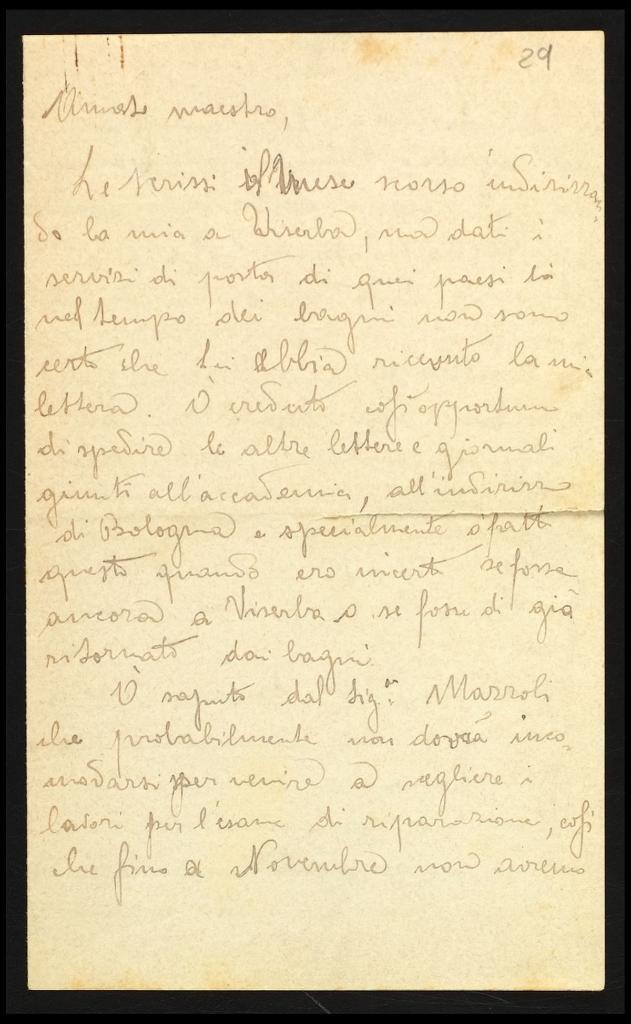 29
Amato maestro,
Le scrissi il mese scorso indirizzan-
do la mia a Viserba, ma dati i
servizi di posta di quei paesi là
nel tempo dei bagni non sono
certo che Lei abbia ricevuto la mi
lettera. Ò creduto così opportuno
di spedire le altre lettere e giornali
giunti all'accademia, all'indirizzo
di Bologna e specialmente ò fatto
questo quando ero incerto se fosse
ancora a Viserba o se fosse di già
ritornato dai bagni.
Ò saputo dal Sig.or Mazzoli
che probabilmente non dovrà inco-
modarsi per venire a scegliere i
lavori per l'esame di riparazione, così
che fino a Novembre non avremo